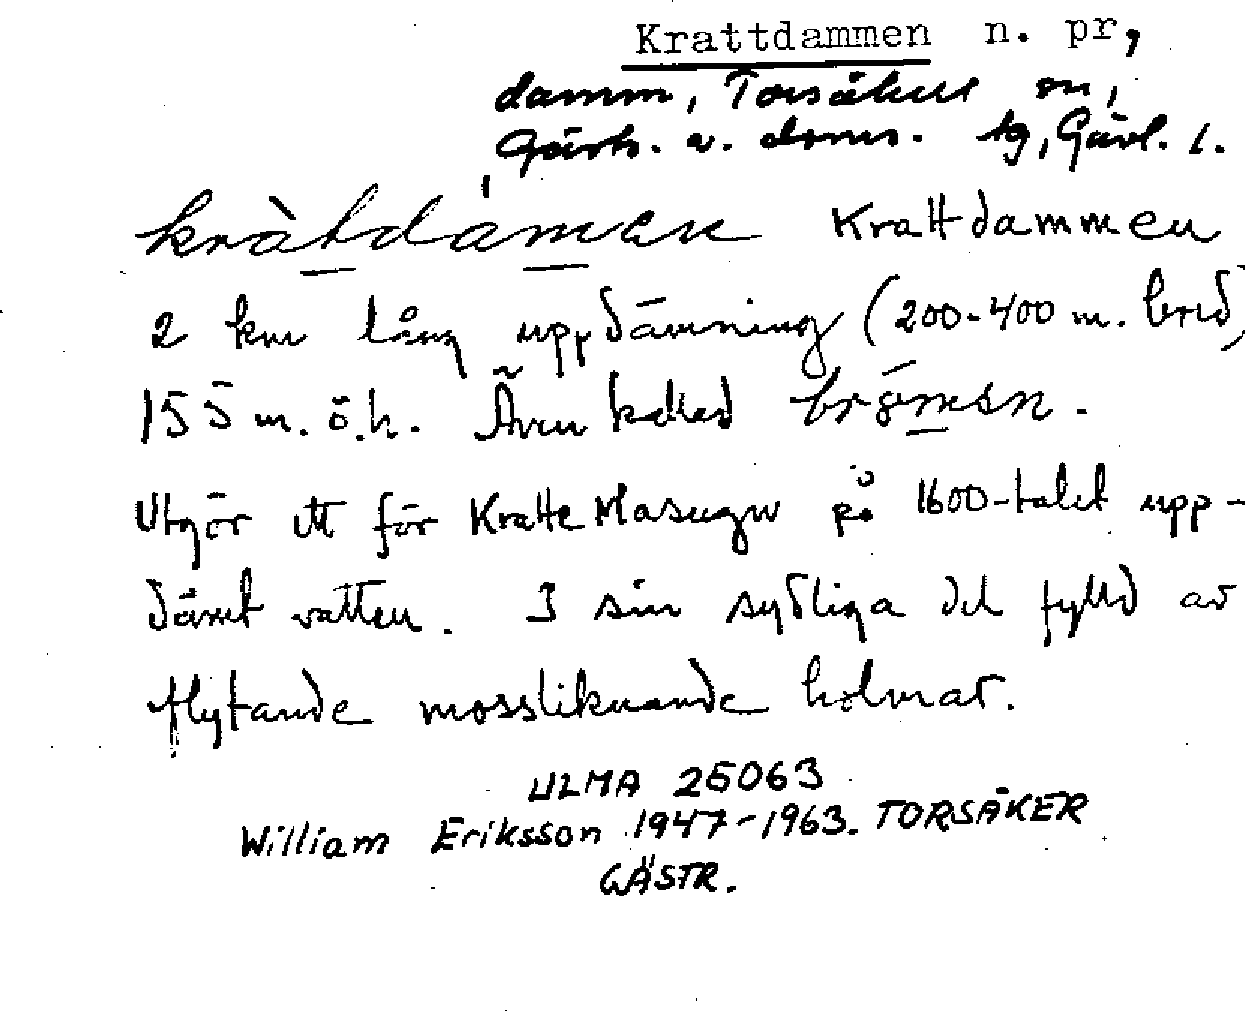 Krattdammen n. pr,
damm, Torsåkers sn,
Gästr. v. doms. tg, Gävl. l.
kràtdámen Krattdammen
2 km lång uppdämning (200-400 m. bred)
155 m. ö.h. Även kallad
Utgör ett för Kratte Masugn på 1600-talet upp-
dämt vatten. I sin sydliga del fylld av
flytande mossliknande holmar.
ULMA 25063
William Eriksson 1947-1963. TORSÅKER
GÄSTR.